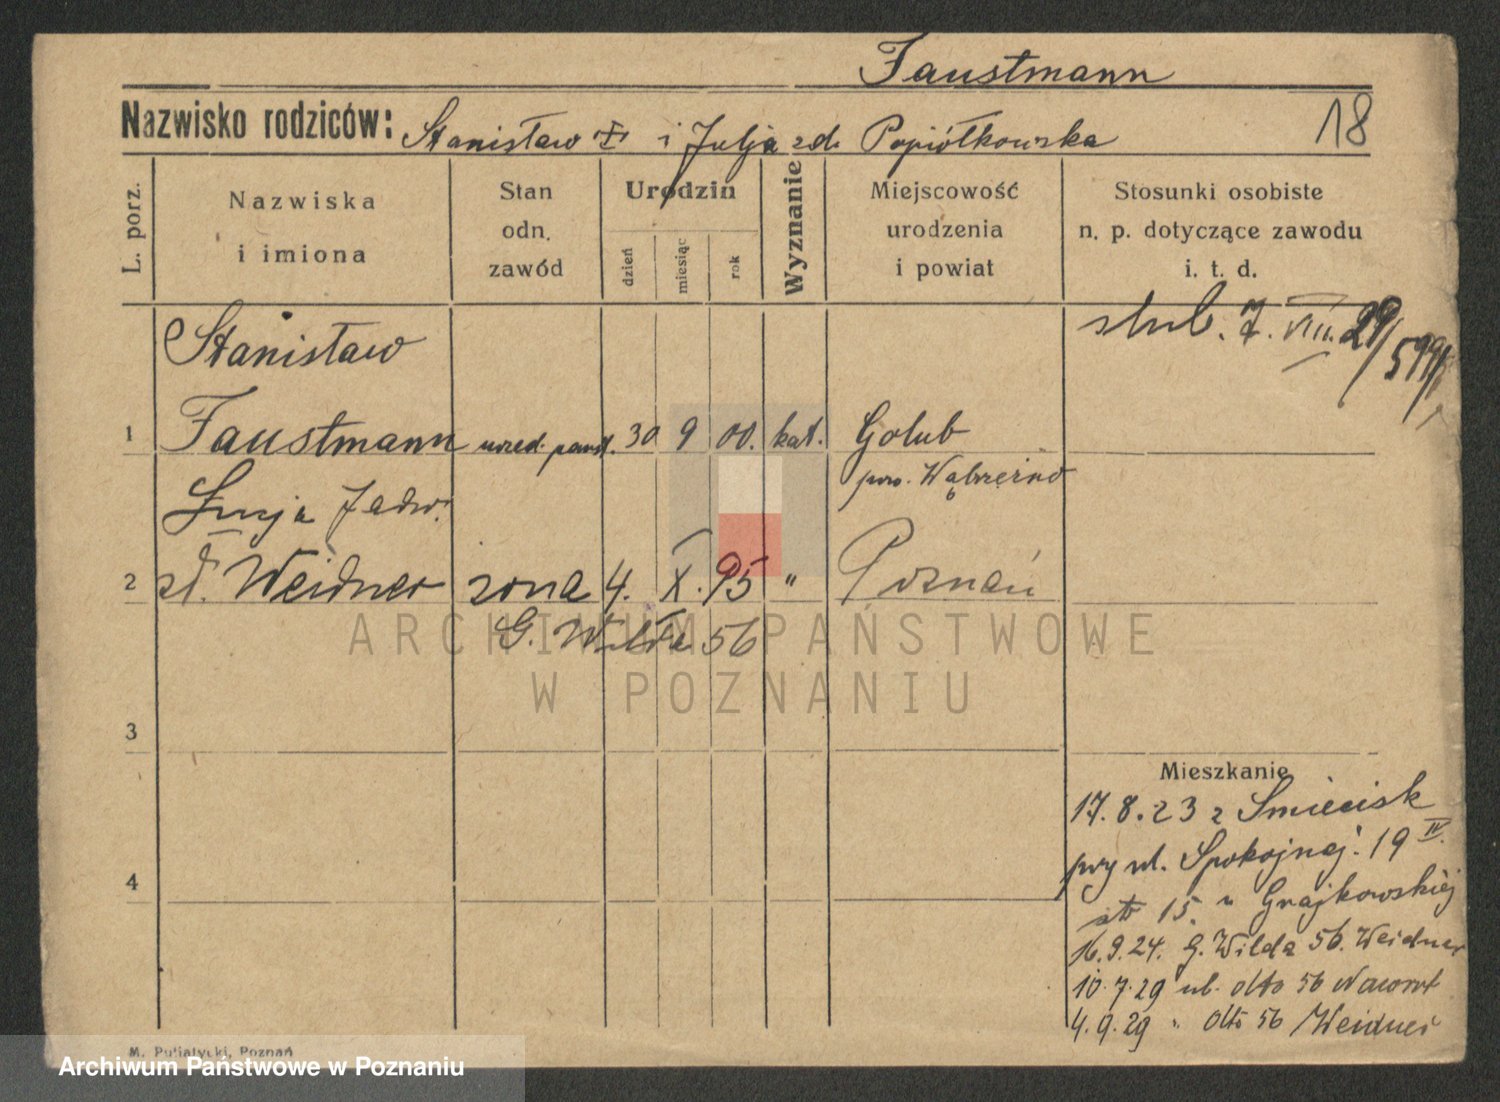 Faustmann
Nazwisko rodziców: Stanisław i Julja zd. Popiółkowska
18
L. porz.
Nazwiska
i imiona
Stan
odn.
zawód
Urodzin
dzień
miesiąc
rok
Wyznanie
Miejscowość
urodzenia
i powiat
Stosunki osobiste
n. p. dotyczące zawodu
i. t. d.
ślub. 7. VIII. 29/599/
Stanisław
1 Faustmann urzęd. państ. 30 9 00. kat. Golub
pow. Wąbrzeźno
Łucja Jadw.
2 zd. Weidner żona 4. X. 95 " Poznań
G. Wilda 56
ARCHIWUM PAŃSTWOWE
W POZNANIU
3
Mieszkanie
17.8.23 z Śmiecisk
przy ul. Spokojnej 19 IV.
4
15. u Grajkowskiej
16.9.24. G. Wilda 56. Weidner
10.7.29 ub. dtto 56 Nawrot
4.9.29 " dtto 56 Weidner
M. Putiatycki, Poznań
Archiwum Państwowe w Poznaniu